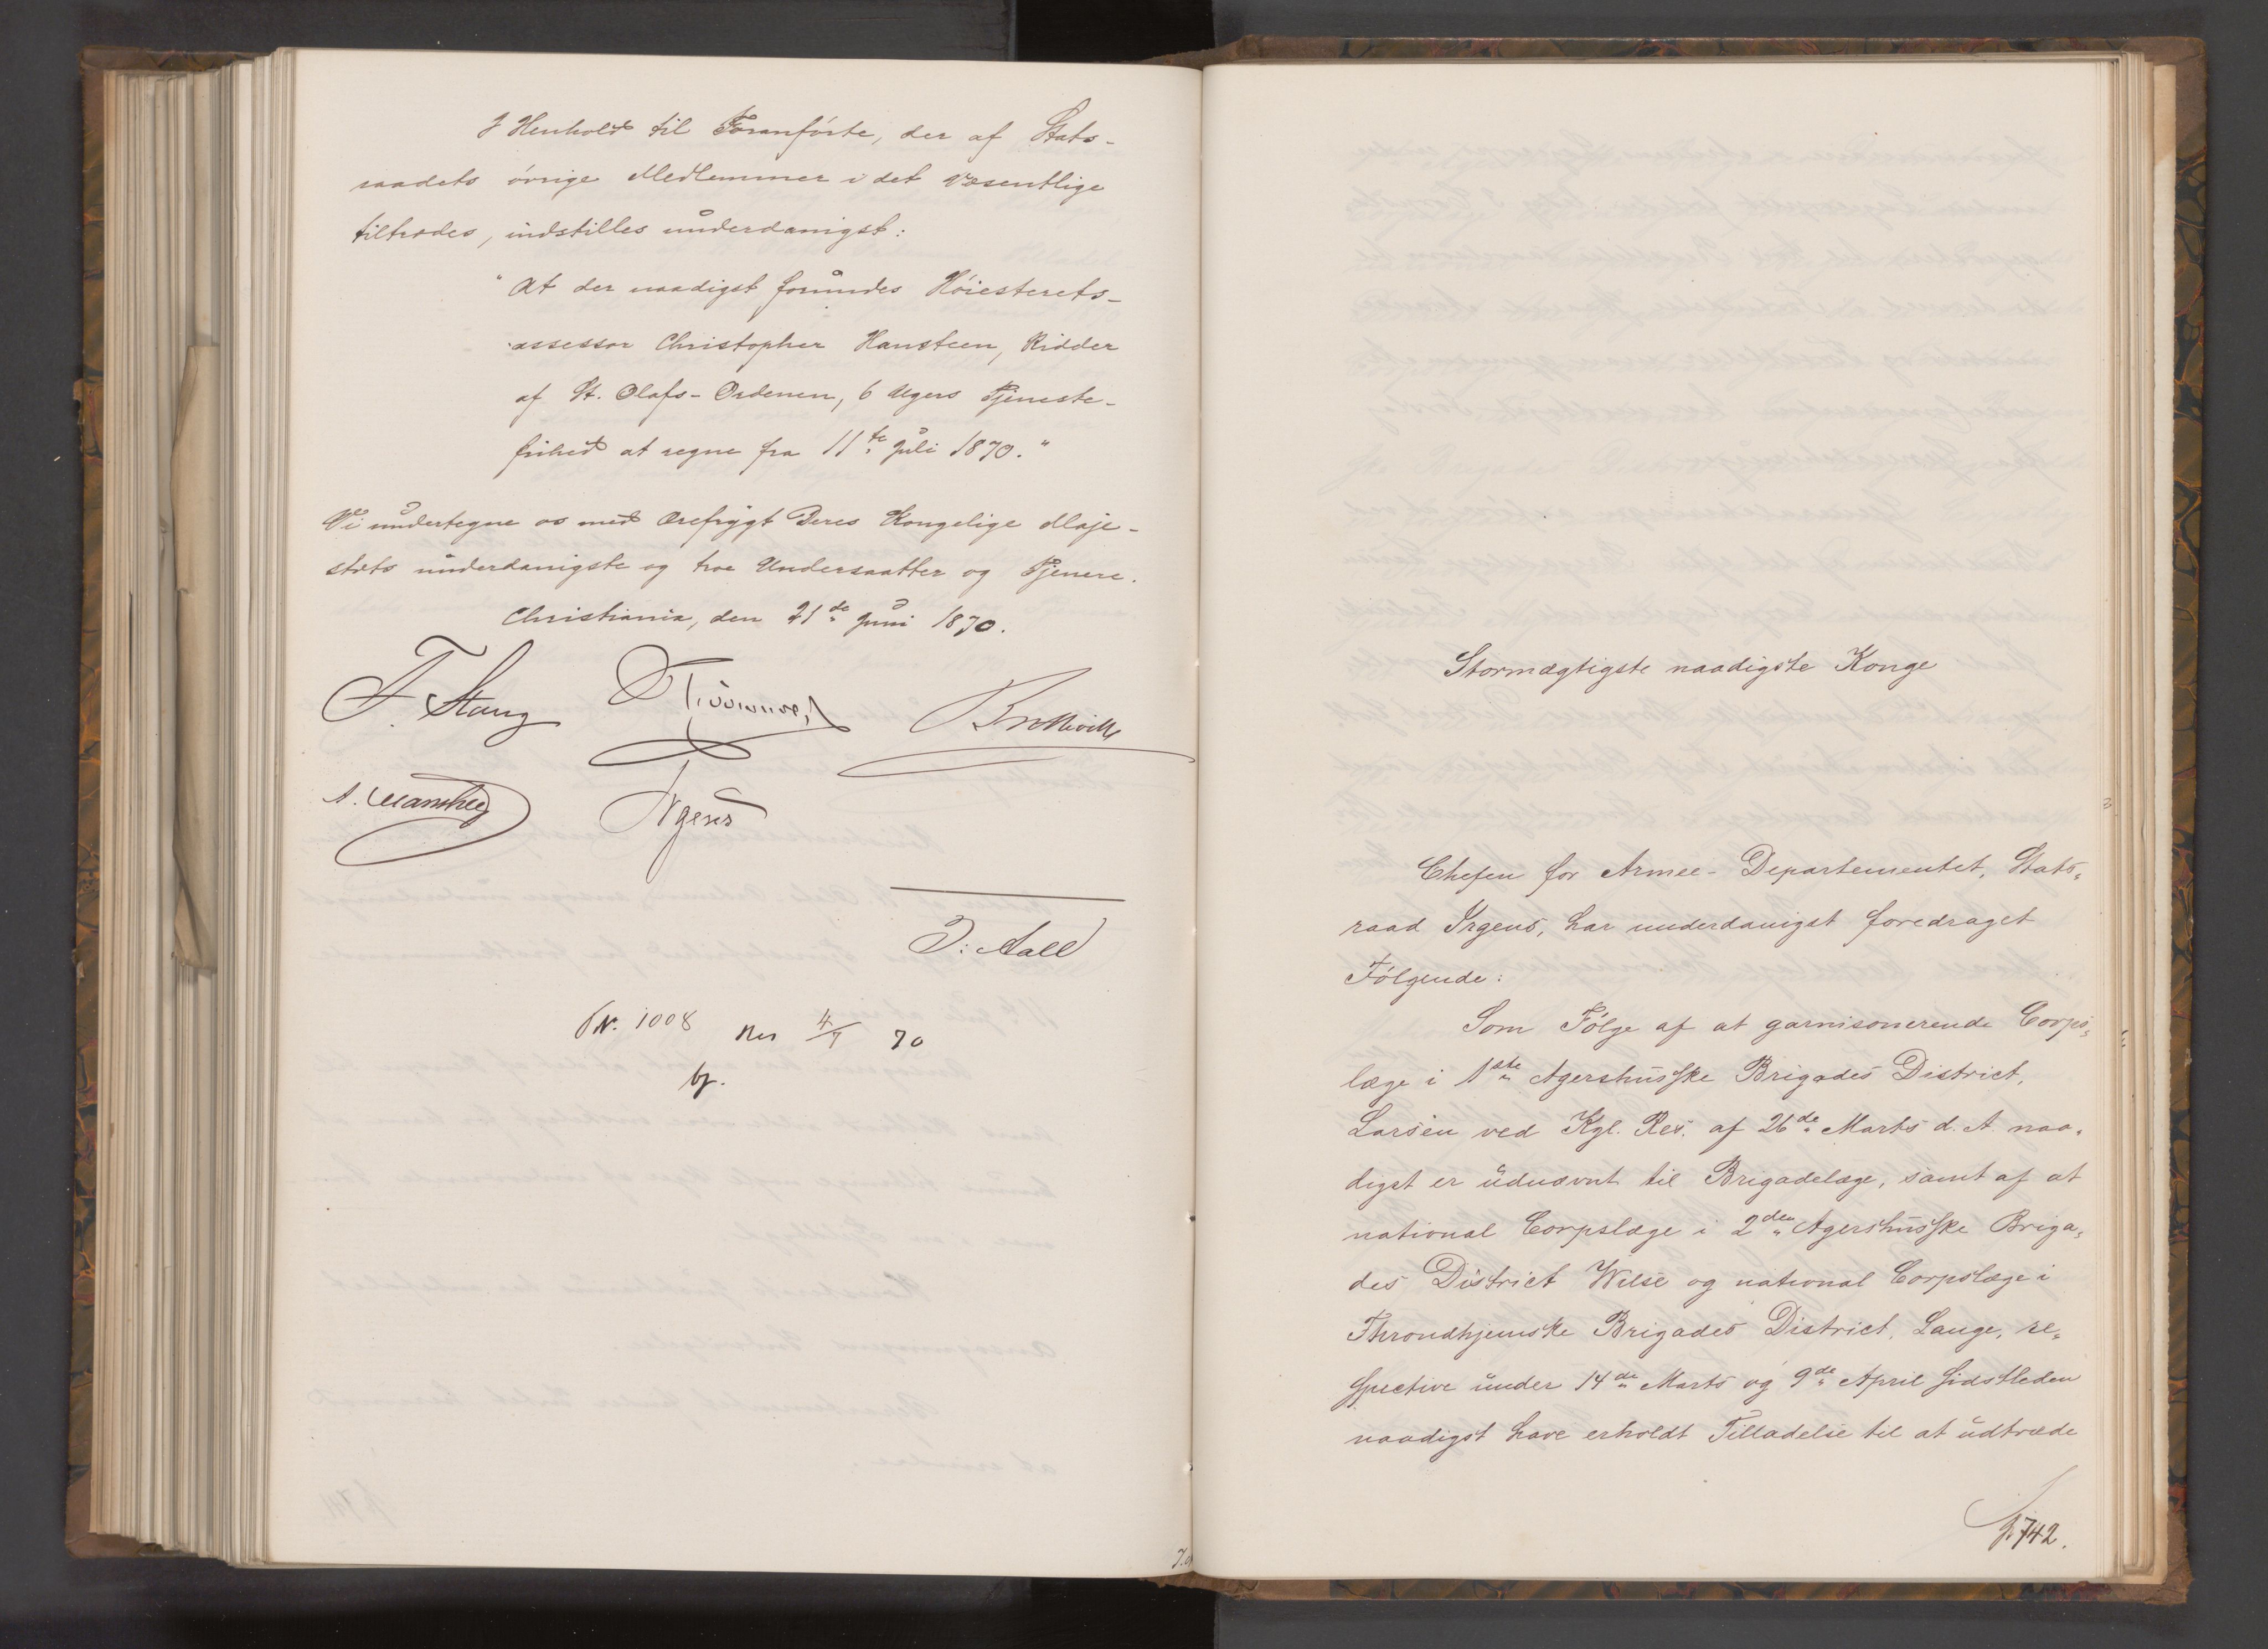 I Henhold til Foranførte, der af Stats-
raadets øvrige Medlemmer i det Væsentlige
tiltrædes, indstilles underdanigst:
"At der naadigst forundes Høiesterets-
assessor Christopher Hansteen, Ridder
af St. Olafs-Ordenen, 6 Ugers Tjeneste-
frihed at regne fra 11te Juli 1870."
Vi undertegne os med Ærefrygt Deres Kongelige Maje-
stæts underdanigste og troe Undersaatter og Tjenere.
Christiania, den 21de Juni 1870.
F. Stang
N. Vogt
A. Manthey Irgens
J: Aall
No. 1008 Res 4/7 70
Stormægtigste naadigste Konge
Chefen for Armee-Departementet, Stats-
raad Irgens, har underdanigst foredraget
Følgende:
Som Følge af at garnisonerende Corps-
læge i 1ste Agershusske Brigades District,
Larsen ved Kgl. Res. af 26de Marts d. A. naa-
digst er udnævnt til Brigadelæge, samt af at
national Corpslæge i 2den Agershusske Briga-
des District Wilse og national Corpslæge i
Throndhjemske Brigades District, Lange, re-
spective under 14de Marts og 9de April sidstleden
naadigst have erholdt Tilladelse til at udtræde
742.